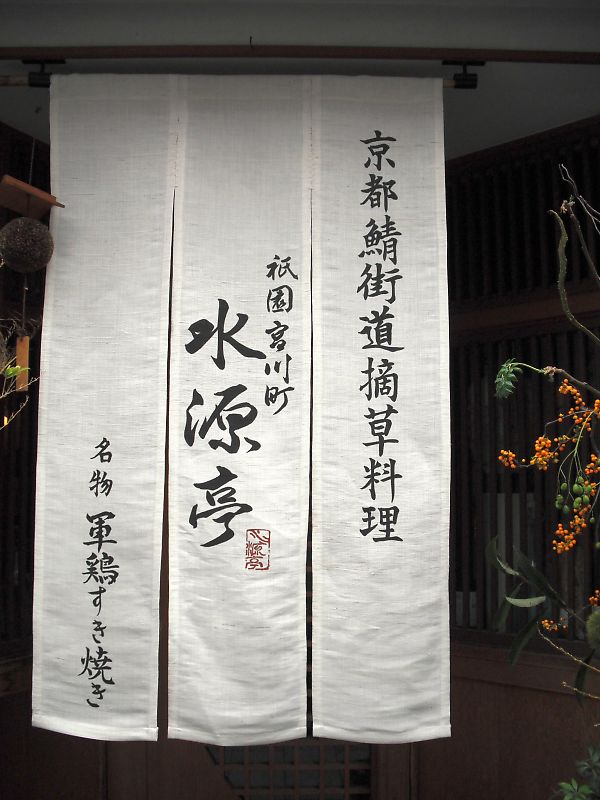 京都鯖街道摘草料理
祇園宮川町
水源亭
水源亭
名物 軍鶏すき焼き